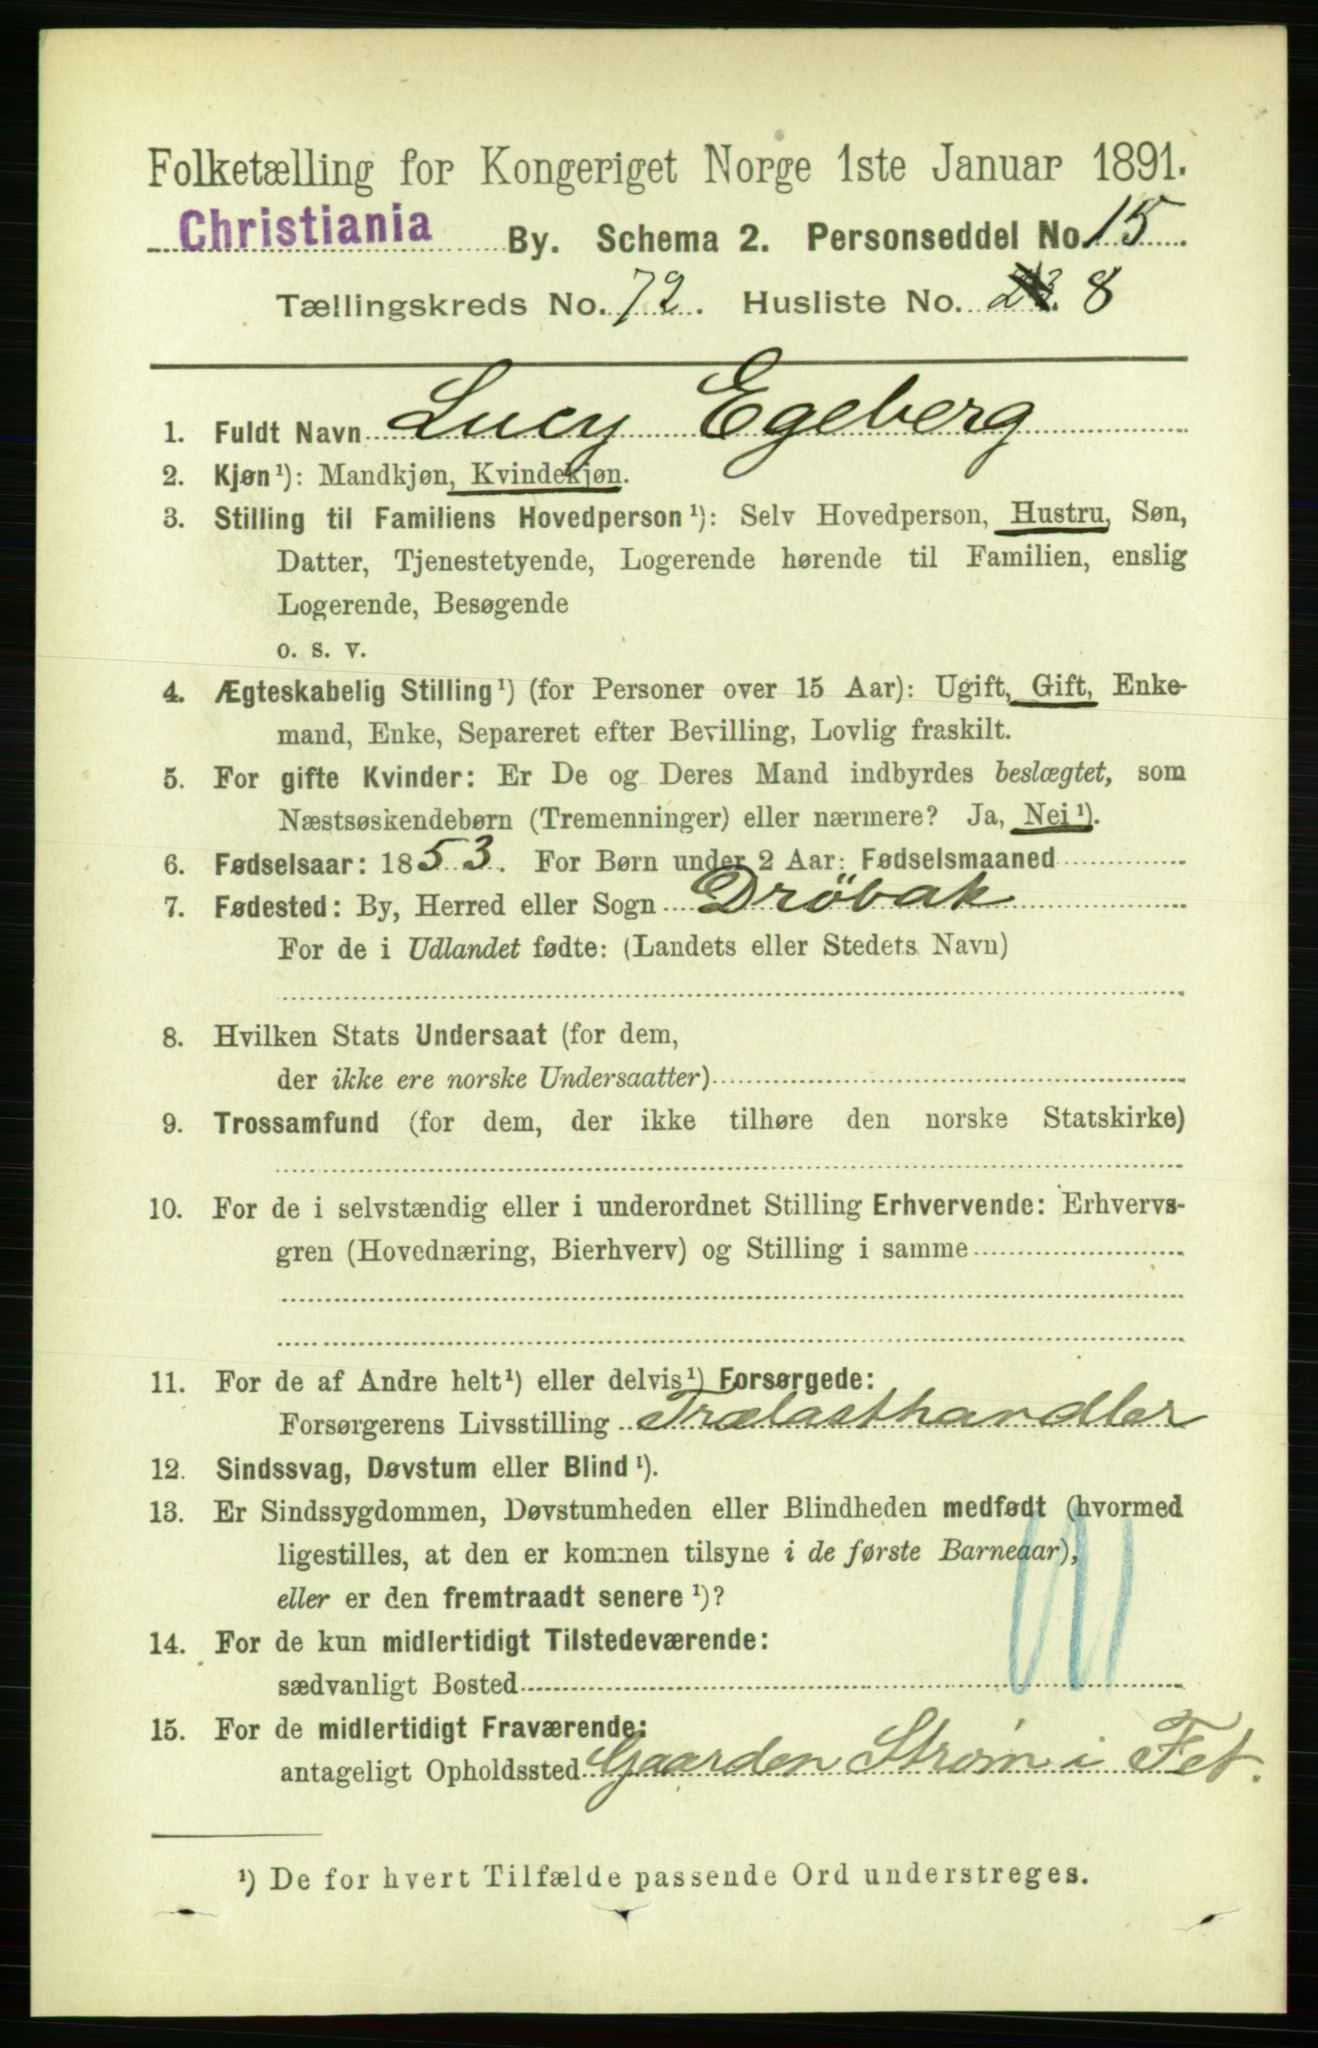 Folketælling for Kongeriget Norge 1ste Januar 1891.
Christiania By. Schema 2. Personseddel No. 15.
Tællingskreds No. 72. Husliste No. 8
1. Fuldt Navn Lucy Egeberg
2. Kjøn¹): Mandkjøn, Kvindekjøn.
3. Stilling til Familiens Hovedperson¹): Selv Hovedperson, Hustru, Søn,
Datter, Tjenestetyende, Logerende hørende til Familien, enslig
Logerende, Besøgende
o. s. v.
4. Ægteskabelig Stilling¹) (for Personer over 15 Aar): Ugift, Gift, Enke-
mand, Enke, Separeret efter Bevilling, Lovlig fraskilt.
5. For gifte Kvinder: Er De og Deres Mand indbyrdes beslægtet, som
Næstsøskendebørn (Tremenninger) eller nærmere? Ja, Nei¹).
6. Fødselsaar: 1853. For Børn under 2 Aar: Fødselsmaaned
7. Fødested: By, Herred eller Sogn Dröbak
For de i Udlandet fødte: (Landets eller Stedets Navn)
8. Hvilken Stats Undersaat (for dem,
der ikke ere norske Undersaatter)
9. Trossamfund (for dem, der ikke tilhøre den norske Statskirke)
10. For de i selvstændig eller i underordnet Stilling Erhvervende: Erhvervs-
gren (Hovednæring, Bierhverv) og Stilling i samme
11. For de af Andre helt¹) eller delvis¹) Forsørgede:
Forsørgerens Livsstilling Trælasthandler
12. Sindssvag, Døvstum eller Blind¹).
13. Er Sindssygdommen, Døvstumheden eller Blindheden medfødt (hvormed
ligestilles, at den er kommen tilsyne i de første Barneaar),
eller er den fremtraadt senere¹)?
14. For de kun midlertidigt Tilstedeværende:
sædvanligt Bosted
15. For de midlertidigt Fraværende:
antageligt Opholdssted Gaarden Strøm i Fet.
¹) De for hvert Tilfælde passende Ord understreges.